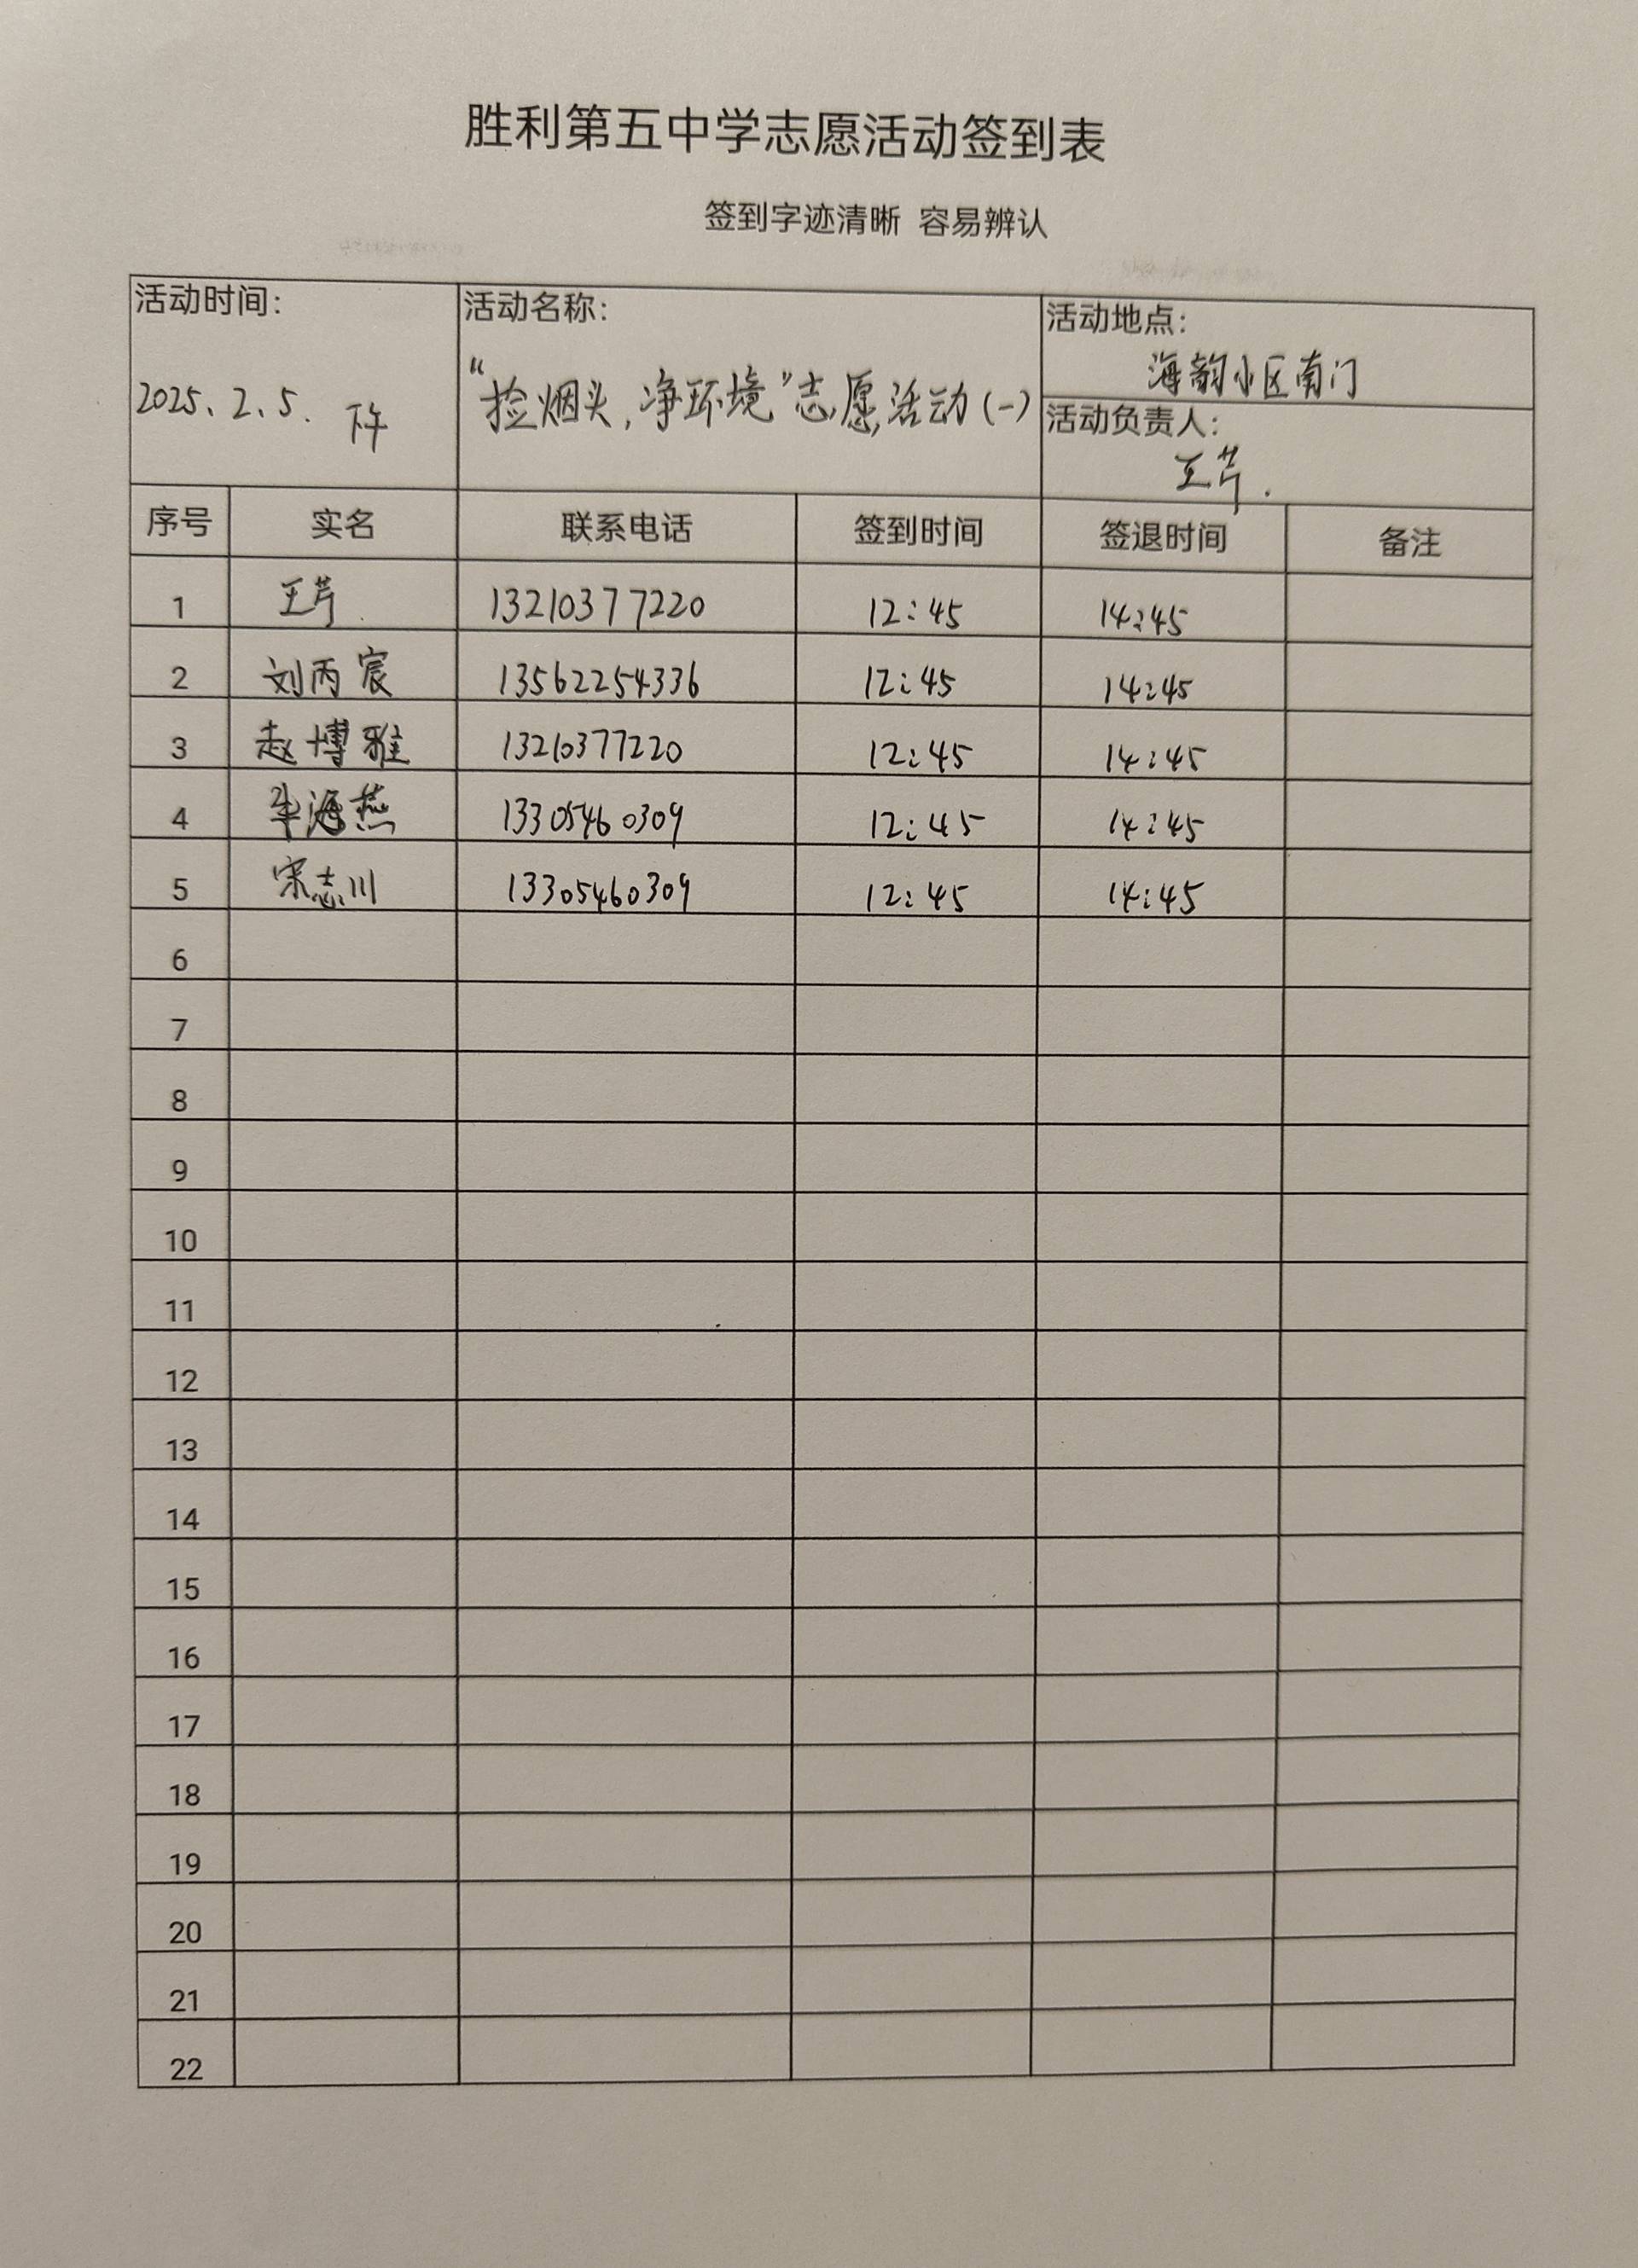 胜利第五中学志愿活动签到表
签到字迹清晰 容易辨认
活动时间： 活动名称： 活动地点：
2025.2.5. 下午 “捡烟头,净环境”志愿活动(一) 海韵小区南门
活动负责人：
王芹.
序号 实名 联系电话 签到时间 签退时间 备注
1 王芹 13210377220 12:45 14:45
2 刘丙宸 13562254336 12:45 14:45
3 赵博雅 13210377220 12:45 14:45
4 海燕 13305460309 12:45 14:45
5 宋志川 13305460309 12:45 14:45
6
7
8
9
10
11
12
13
14
15
16
17
18
19
20
21
22